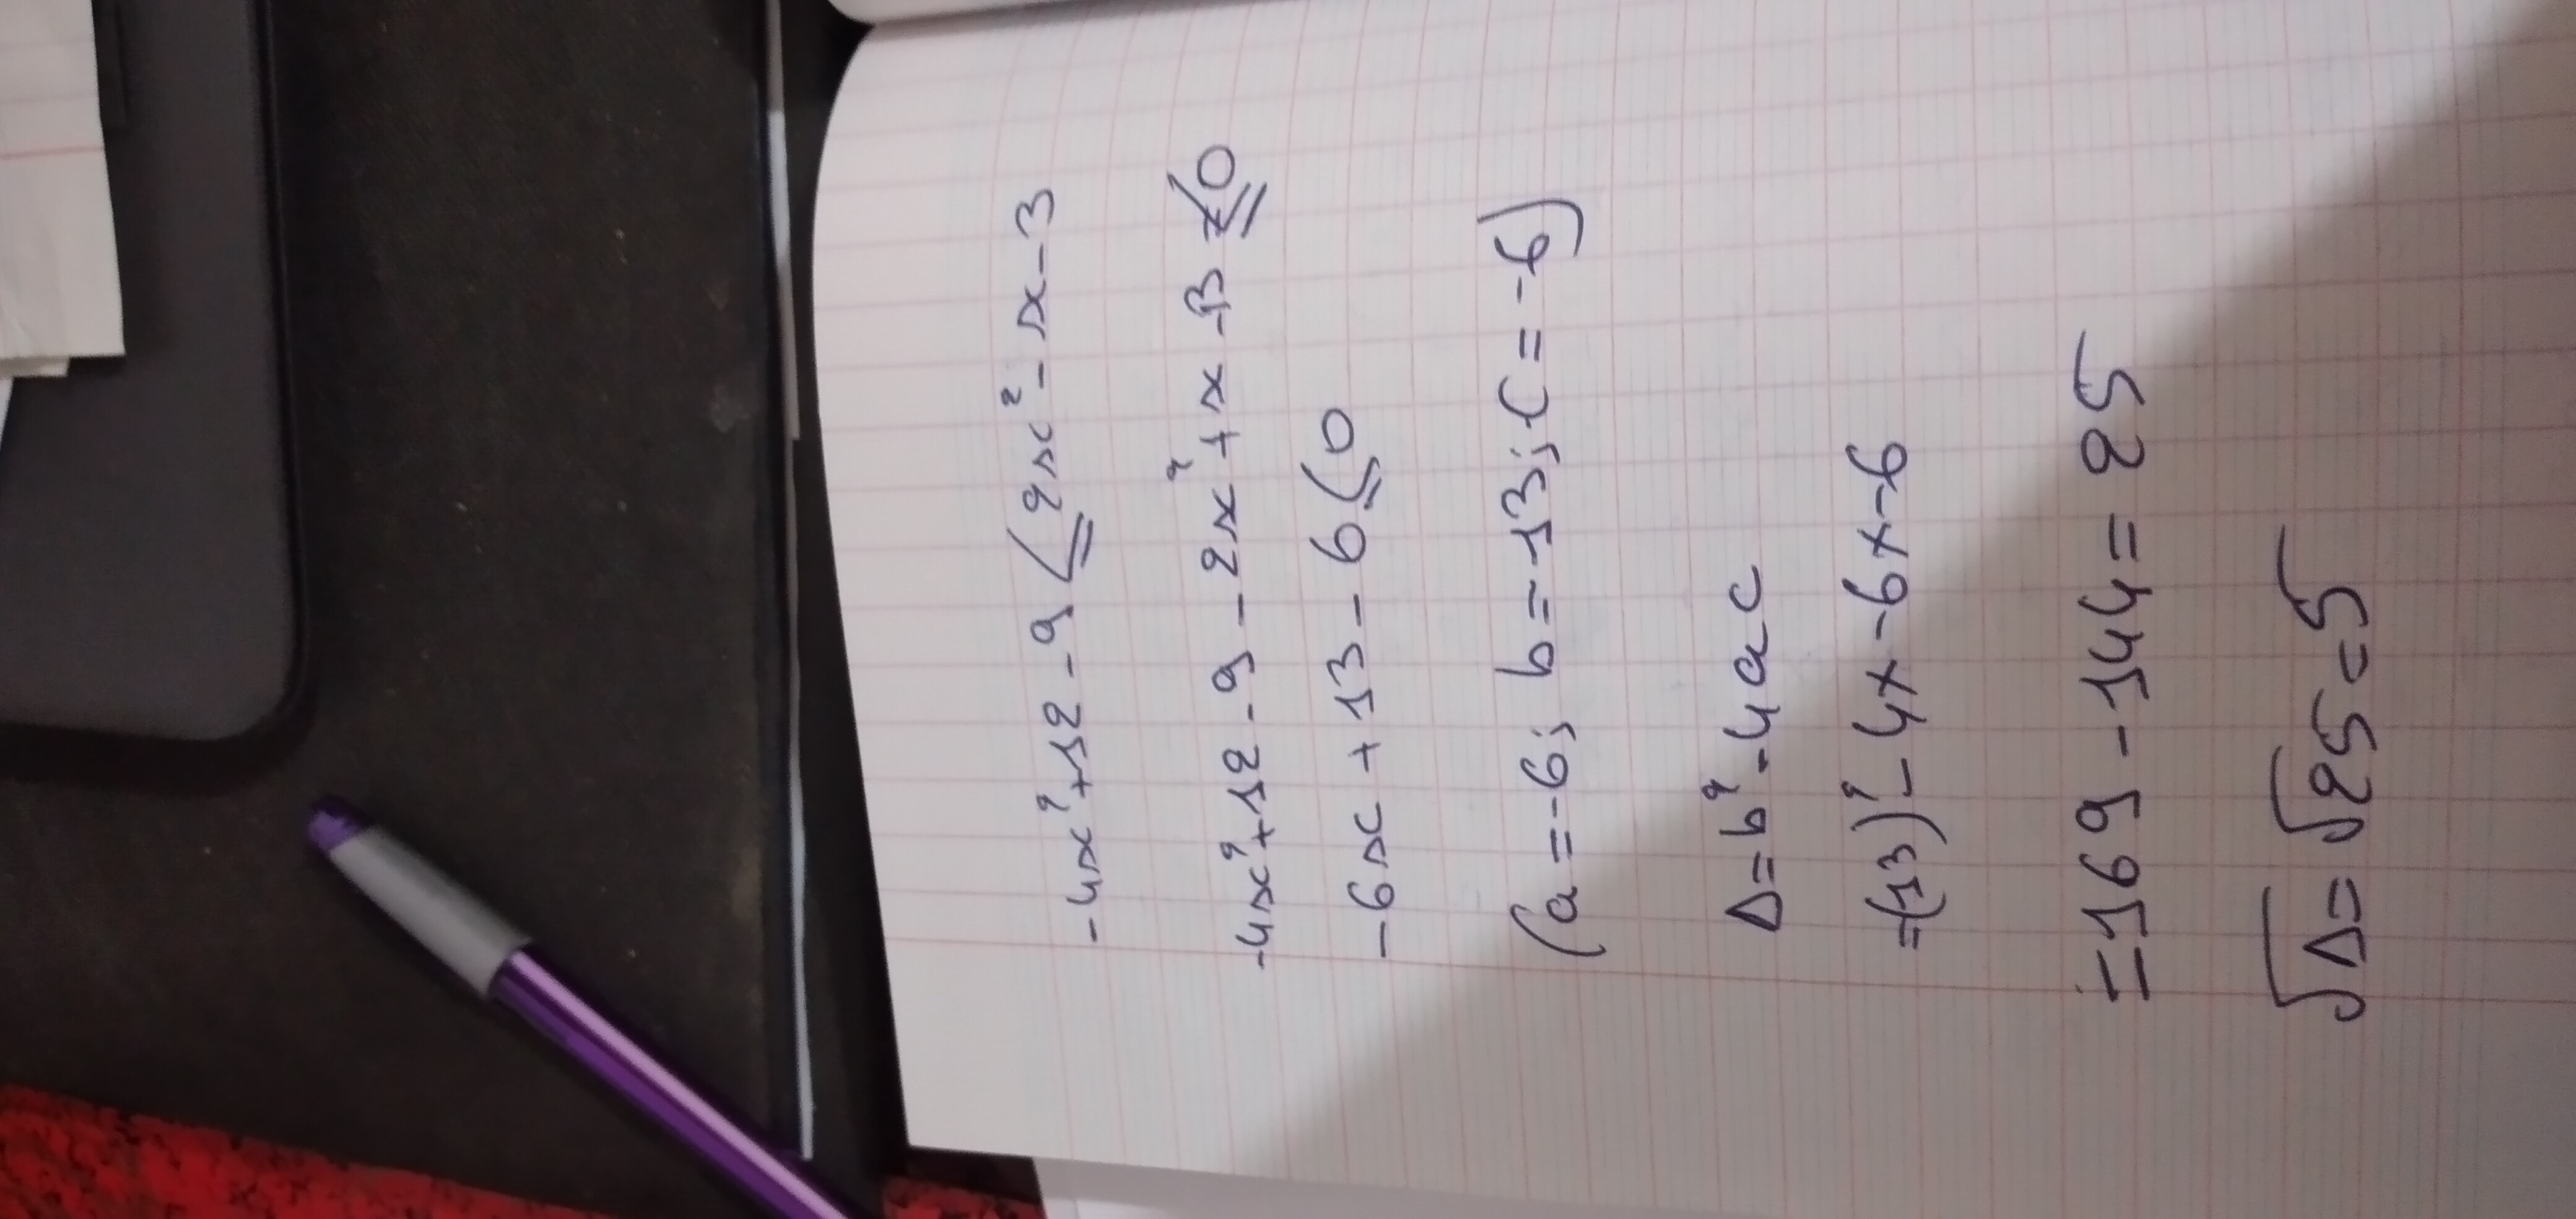 -4x²+12-9 ≤ 2x²-x-3
-4x²+12-9-2x²+x-3 ≤ 0
-6x+13-6 ≤ 0
(a=-6; b=13; C=-6)
Δ=b²-4ac
=(13)²-4x-6x-6
=169-144=25
√Δ=√25=5